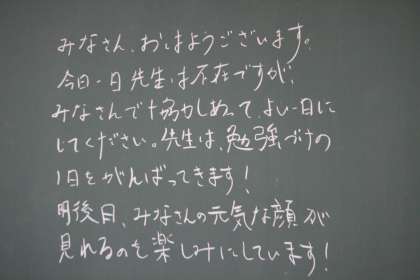 みなさん、おはようございます。
今日一日先生は不在ですが
みなさんで協力しあって、よい一日に
してください。先生は、勉強づけの
1日をがんばってきます！
明後日、みなさんの元気な顔が
見れるのを楽しみにしています！